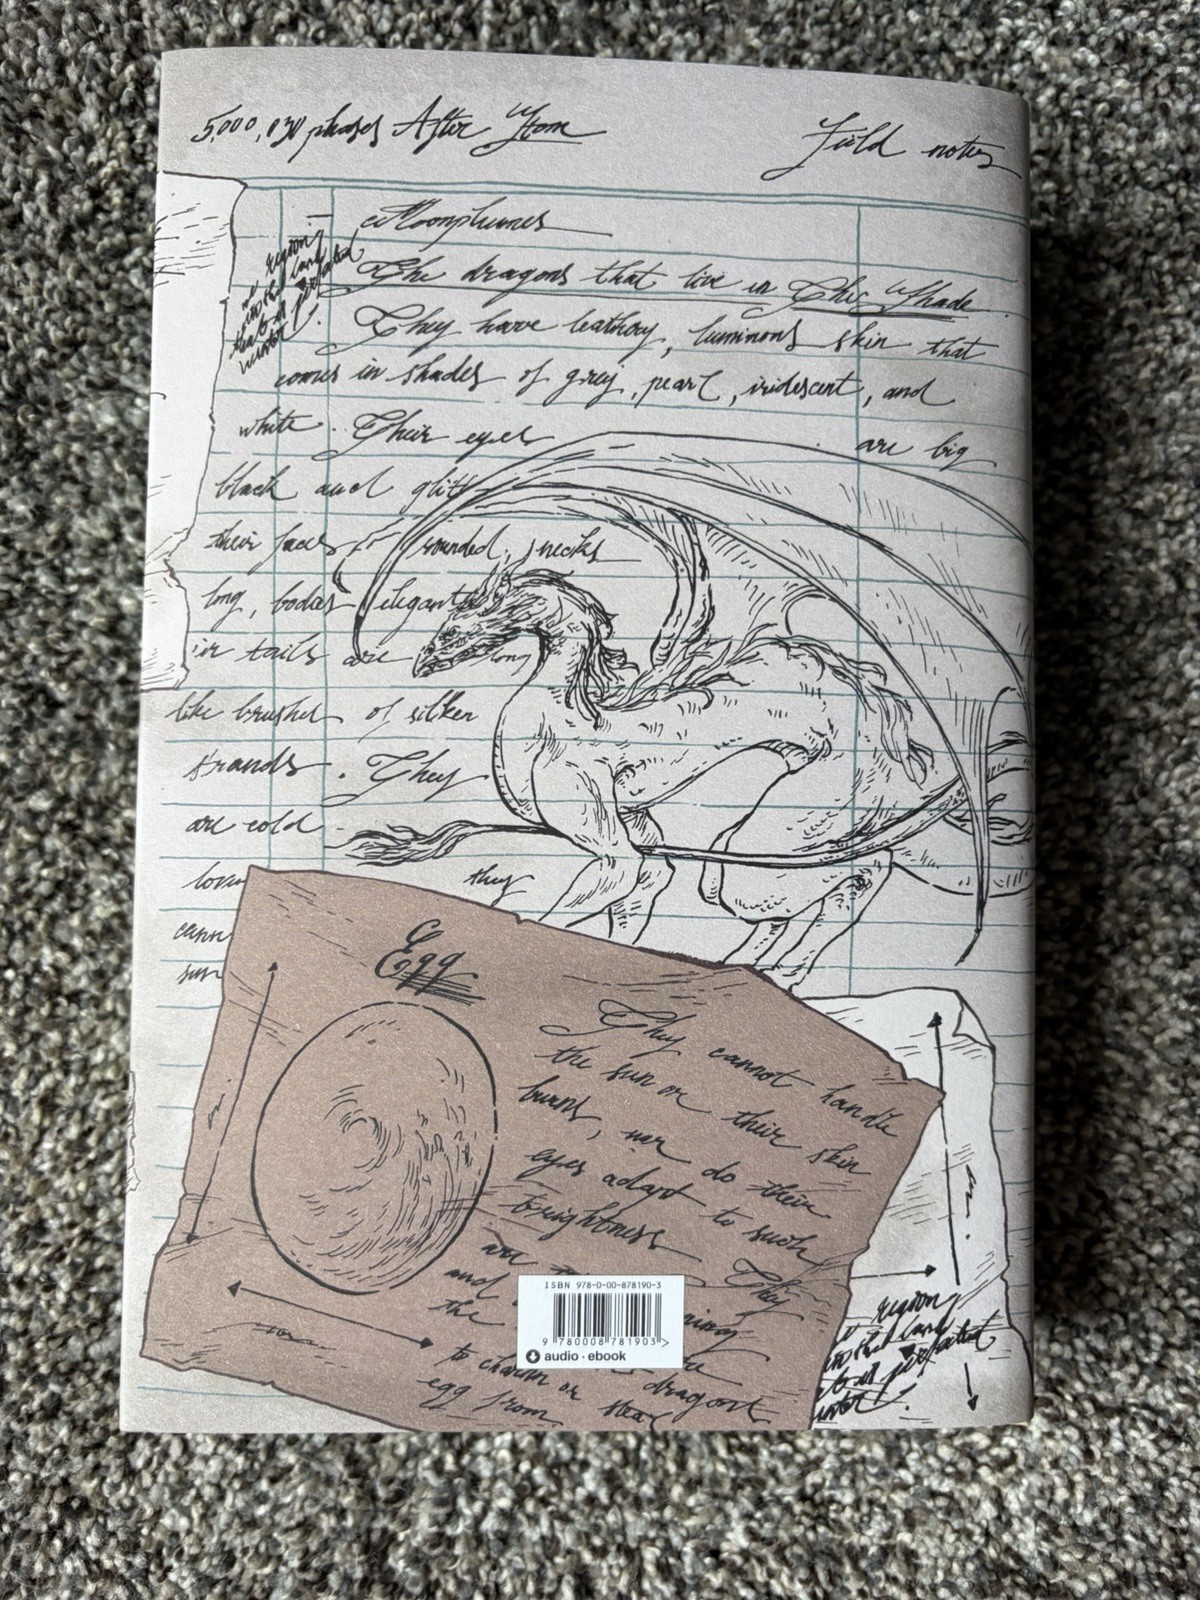 5,000,030 phases After Stone
Field notes
Moonplumes
The dragons that live in The Shade
They have leathery, luminous skin that
comes in shades of grey, pearl, iridescent, and
white. Their eyes are big
black and glitt
their faces rounded, necks
long, bodies elegant
ir tails are long
like brushes of silken
strands. They
are cold
they
cann
sun
region
into the
that
winter
Egg
They cannot handle
the sun or their skin
burns, nor do their
eyes adapt to such
brightness. They
are
and
the
to charm or steal
egg from
dragons
region
ISBN 978-0-00-878190-3
9 780008 781903 >
audio · ebook